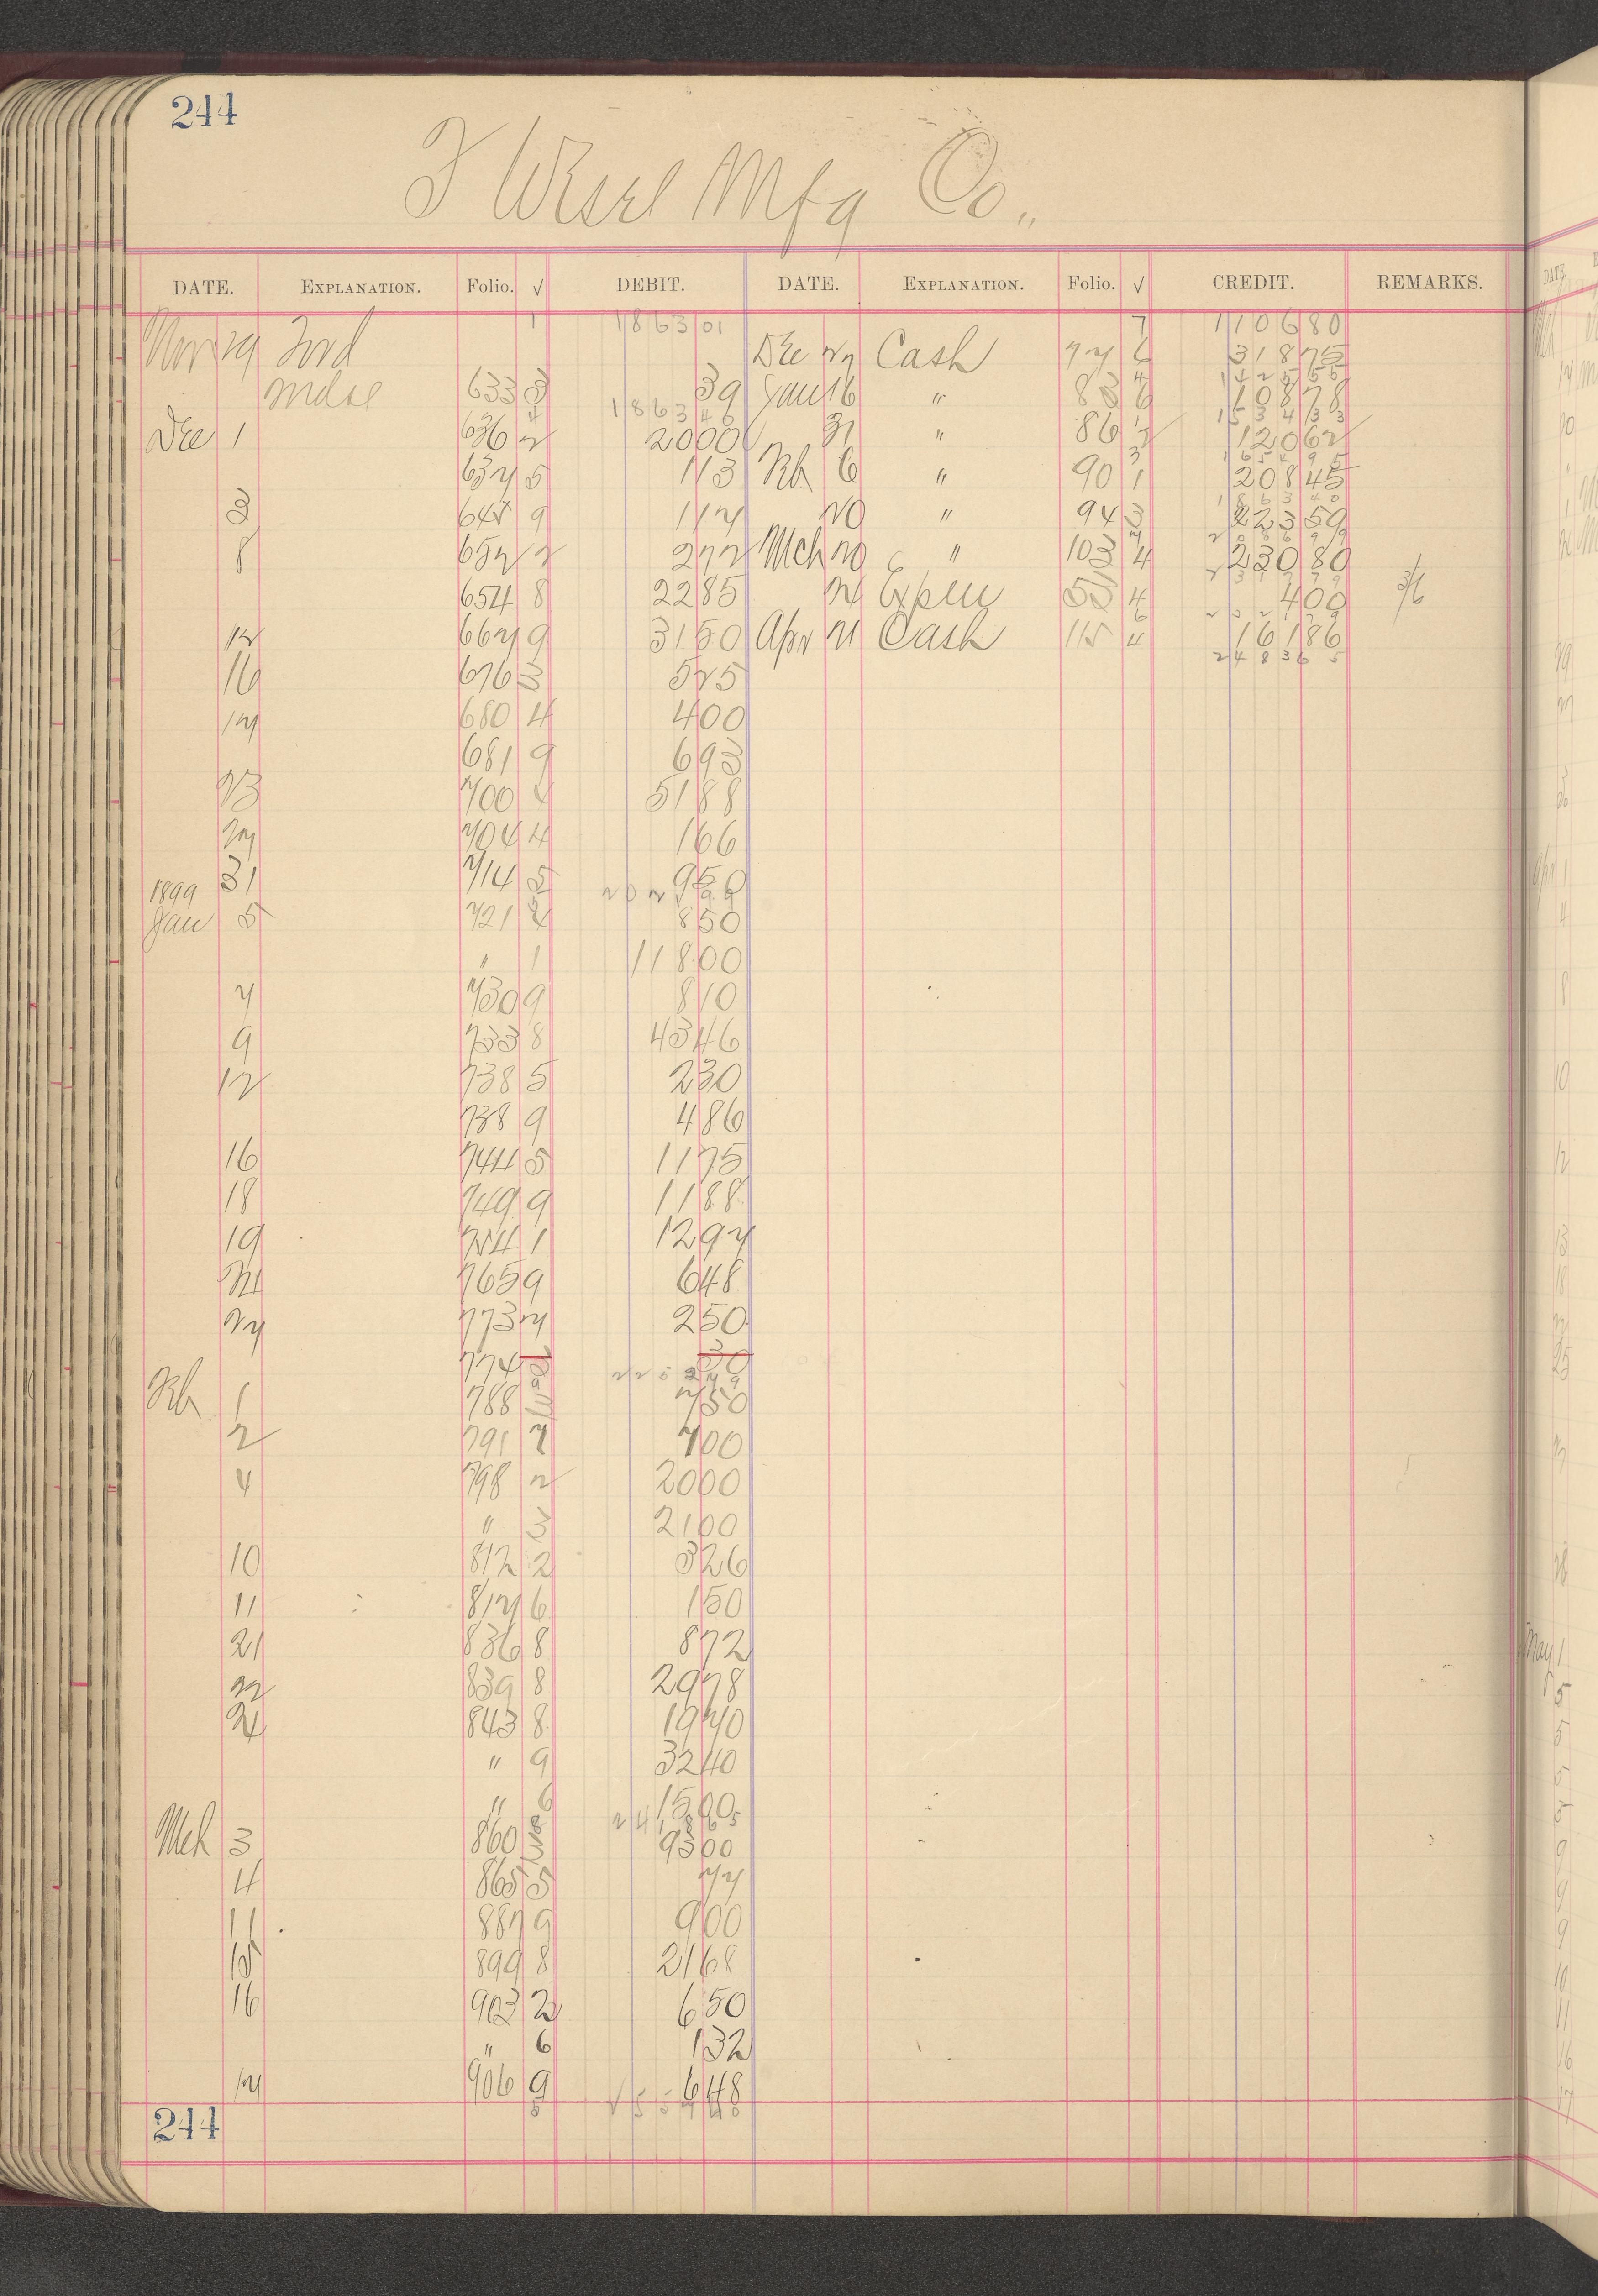 244
F Wesel Mfg Co.,
DATE. EXPLANATION. Folio. √ DEBIT. DATE. EXPLANATION. Folio. √ CREDIT. REMARKS.
1 1863 01 7 1106 80
Nov 29 Ford Dec 27 Cash 77 6 318 75
1425 55
Mdse 633 3 39 Jan 16 " 83 6 108 78
1863 40 1534 33
Dec 1 636 2 20 00 31 " 86 120 62
1654 95
637 5 1 13 Feb 6 " 90 1 208 45
1863 40
3 648 9 1 17 20 " 94 3 223 59
2086 99
8 652 2 2 72 Mch 20 " 103 4 230 80
654 8 22 85 24 Expen 4 4 00 3/6
12 667 9 31 50 Apr 21 Cash 115 4 161 86
2483 65
16 676 3 5 25
17 680 4 4 00
681 9 6 93
23 700 51 88
27 704 4 1 66
31 714 5 9 50
1899
Jan 5 721 8 50
" 1 118 00
7 730 9 8 10
9 733 8 43 46
12 738 5 2 30
738 9 4 86
16 744 5 11 75
18 749 9 11 88
19 754 1 12 97
24 765 9 6 48
27 773 7 2 50
774 30
Feb 1 788 7 50
2 791 7 7 00
4 798 2 20 00
" 3 21 00
10 812 2 3 26
11 817 6 1 50
21 836 8 8 72
22 839 8 29 78
24 843 8 19 70
" 9 32 40
" 6 15 00
Mch 3 860 93 00
4 865 5 77
11 887 9 9 00
15 899 8 21 68
16 903 2 6 50
" 6 1 32
17 906 9 6 48
244